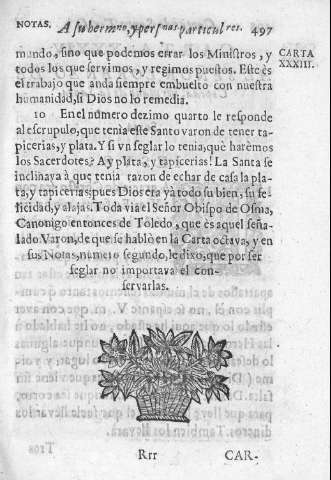 NOTAS. A su hermno, y persnas particulres. 497
mundo, sino que podemos errar los Ministros, y
todos los que servimos, y regimos puestos. Este ès
el trabajo que anda siempre embuelto con nuestra
humanidad, si Dios no lo remedia.
CARTA
XXXIII.
10 En el número dezimo quarto le responde
al escrupulo, que tenia este Santo varon de tener ta-
picerias, y plata. Y si vn seglar lo tenia, què harèmos
los Sacerdotes? Ay plata, y tapicerias! La Santa se
inclinaya à que tenia razon de echar de casa la pla-
ta, y tapicerias: pues Dios era yà todo su bien, su fe-
licidad, y alajas. Toda via el Señor Obispo de Osma,
Canonigo entonces de Toledo, que ès aquel seña-
lado Varon, de que se hablò en la Carta octava, y en
sus Notas, numero segundo, le dixo, que por ser
seglar no importava el con-
servarlas.
Rrr CAR-